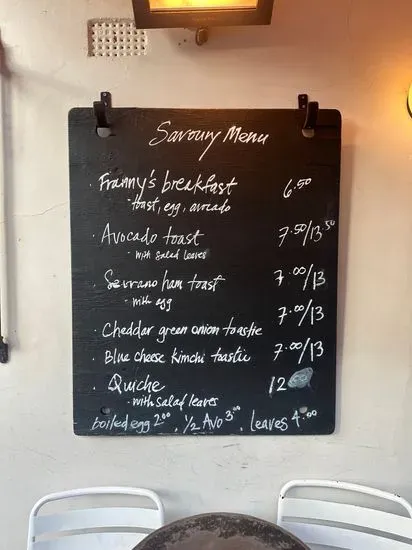 Savoury Menu
· Franny's breakfast 6.50
toast, egg, avocado
· Avocado toast 7.50/13.50
- with salad leaves
· Serrano ham toast 7.00/13
- with egg
· Cheddar green onion toastie 7.00/13
· Blue cheese kimchi toastie 7.00/13
· Quiche 12
- with salad leaves
boiled egg 2.00, 1/2 Avo 3.00, leaves 4.00